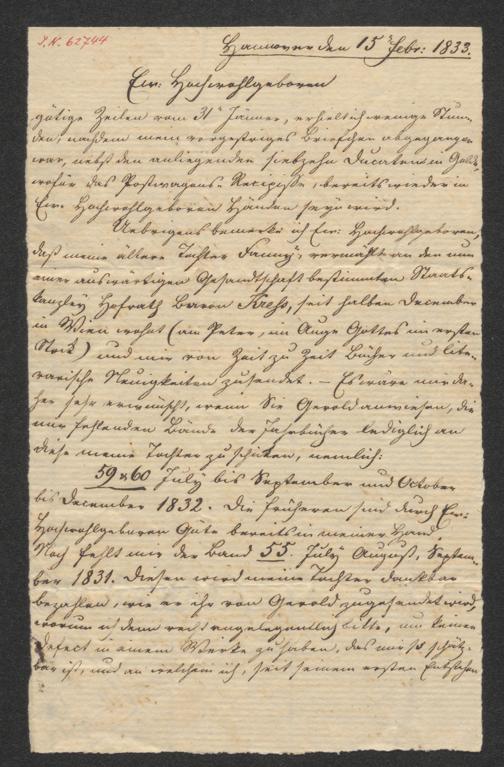 I.N. 62744
Hannover den 15 Febr: 1833.
Euer Hochwohlgeboren
gütige Zeilen vom 31 Jänner, erhielt ich wenige Stun-
den, nachdem mein vorgestriges Briefchen abgegangen
war, nebst den anliegenden siebzehn Ducaten in Gold,
wofür das Postwagens-Recipisse, bereits wieder in
Eur. Hochwohlgeboren Händen seyn wird.
Uebrigens bemerke ich Eur: Hochwohlgeboren,
daß meine ältere Tochter Fanny, vermählt an den nun
einer auswärtigen Gesandtschaft bestimmten Staats-
kanzley Hofrath Baron Kress, seit halben December
in Wien wohnt (am Peter, im Auge Gottes im ersten
Stock) und mir von Zeit zu Zeit Bücher und lite-
rarische Neuigkeiten zusendet. – Es wäre mir da-
her sehr erwünscht, wenn Sie Gerold anwiesen, die
mir fehlenden Bände der Jahrbücher lediglich an
diese meine Tochter zu schicken, nemlich:
59 & 60 July bis September und October
bis December 1832. Die früheren sind durch Eur:
Hochwohlgeboren Güte bereits in meiner Hand.
Noch fehlt mir der Band 55. July August, Septem-
ber 1831. Diesen wird meine Tochter dankbar
bezahlen, wie er ihr von Gerold zugesendet wird,
worum ich denn recht angelegentlich bitte, um keinen
Defect in einem Werke zu haben, das mir so schätz-
bar ist, und an welchem ich, seit seinem ersten Entstehen